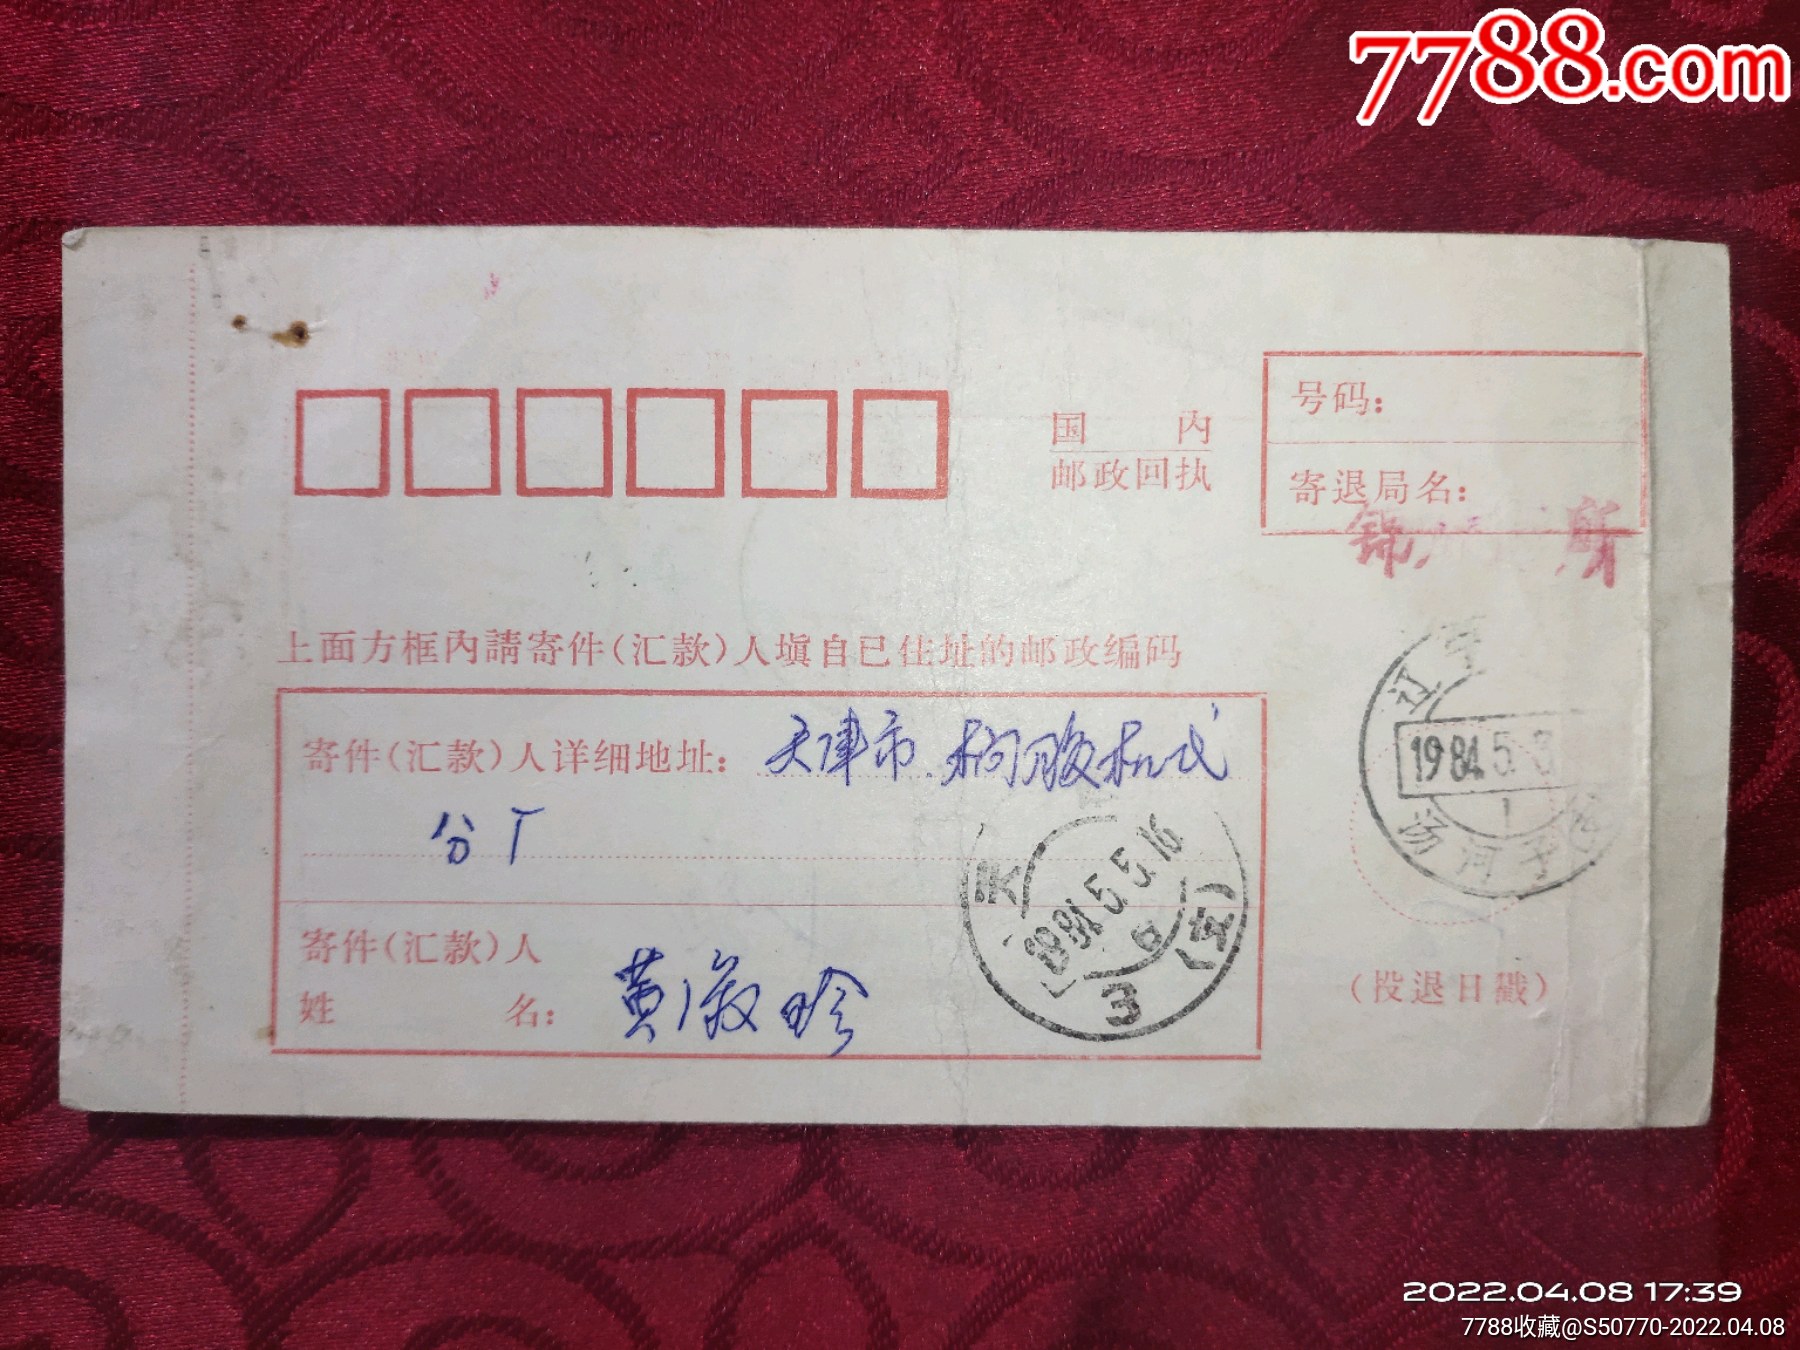 7788.com
国内
邮政回执
号码：
寄退局名：
锦
上面方框内請寄件(汇款)人塡自己住址的邮政编码
寄件(汇款)人详细地址：天津市
分厂
寄件(汇款)人
姓名：黄淑珍
辽宁
1984.5.3
1
河子
天
1984.5.5.16
6
3
(投退日戳)
2022.04.08 17:39
7788收藏@S50770-2022.04.08